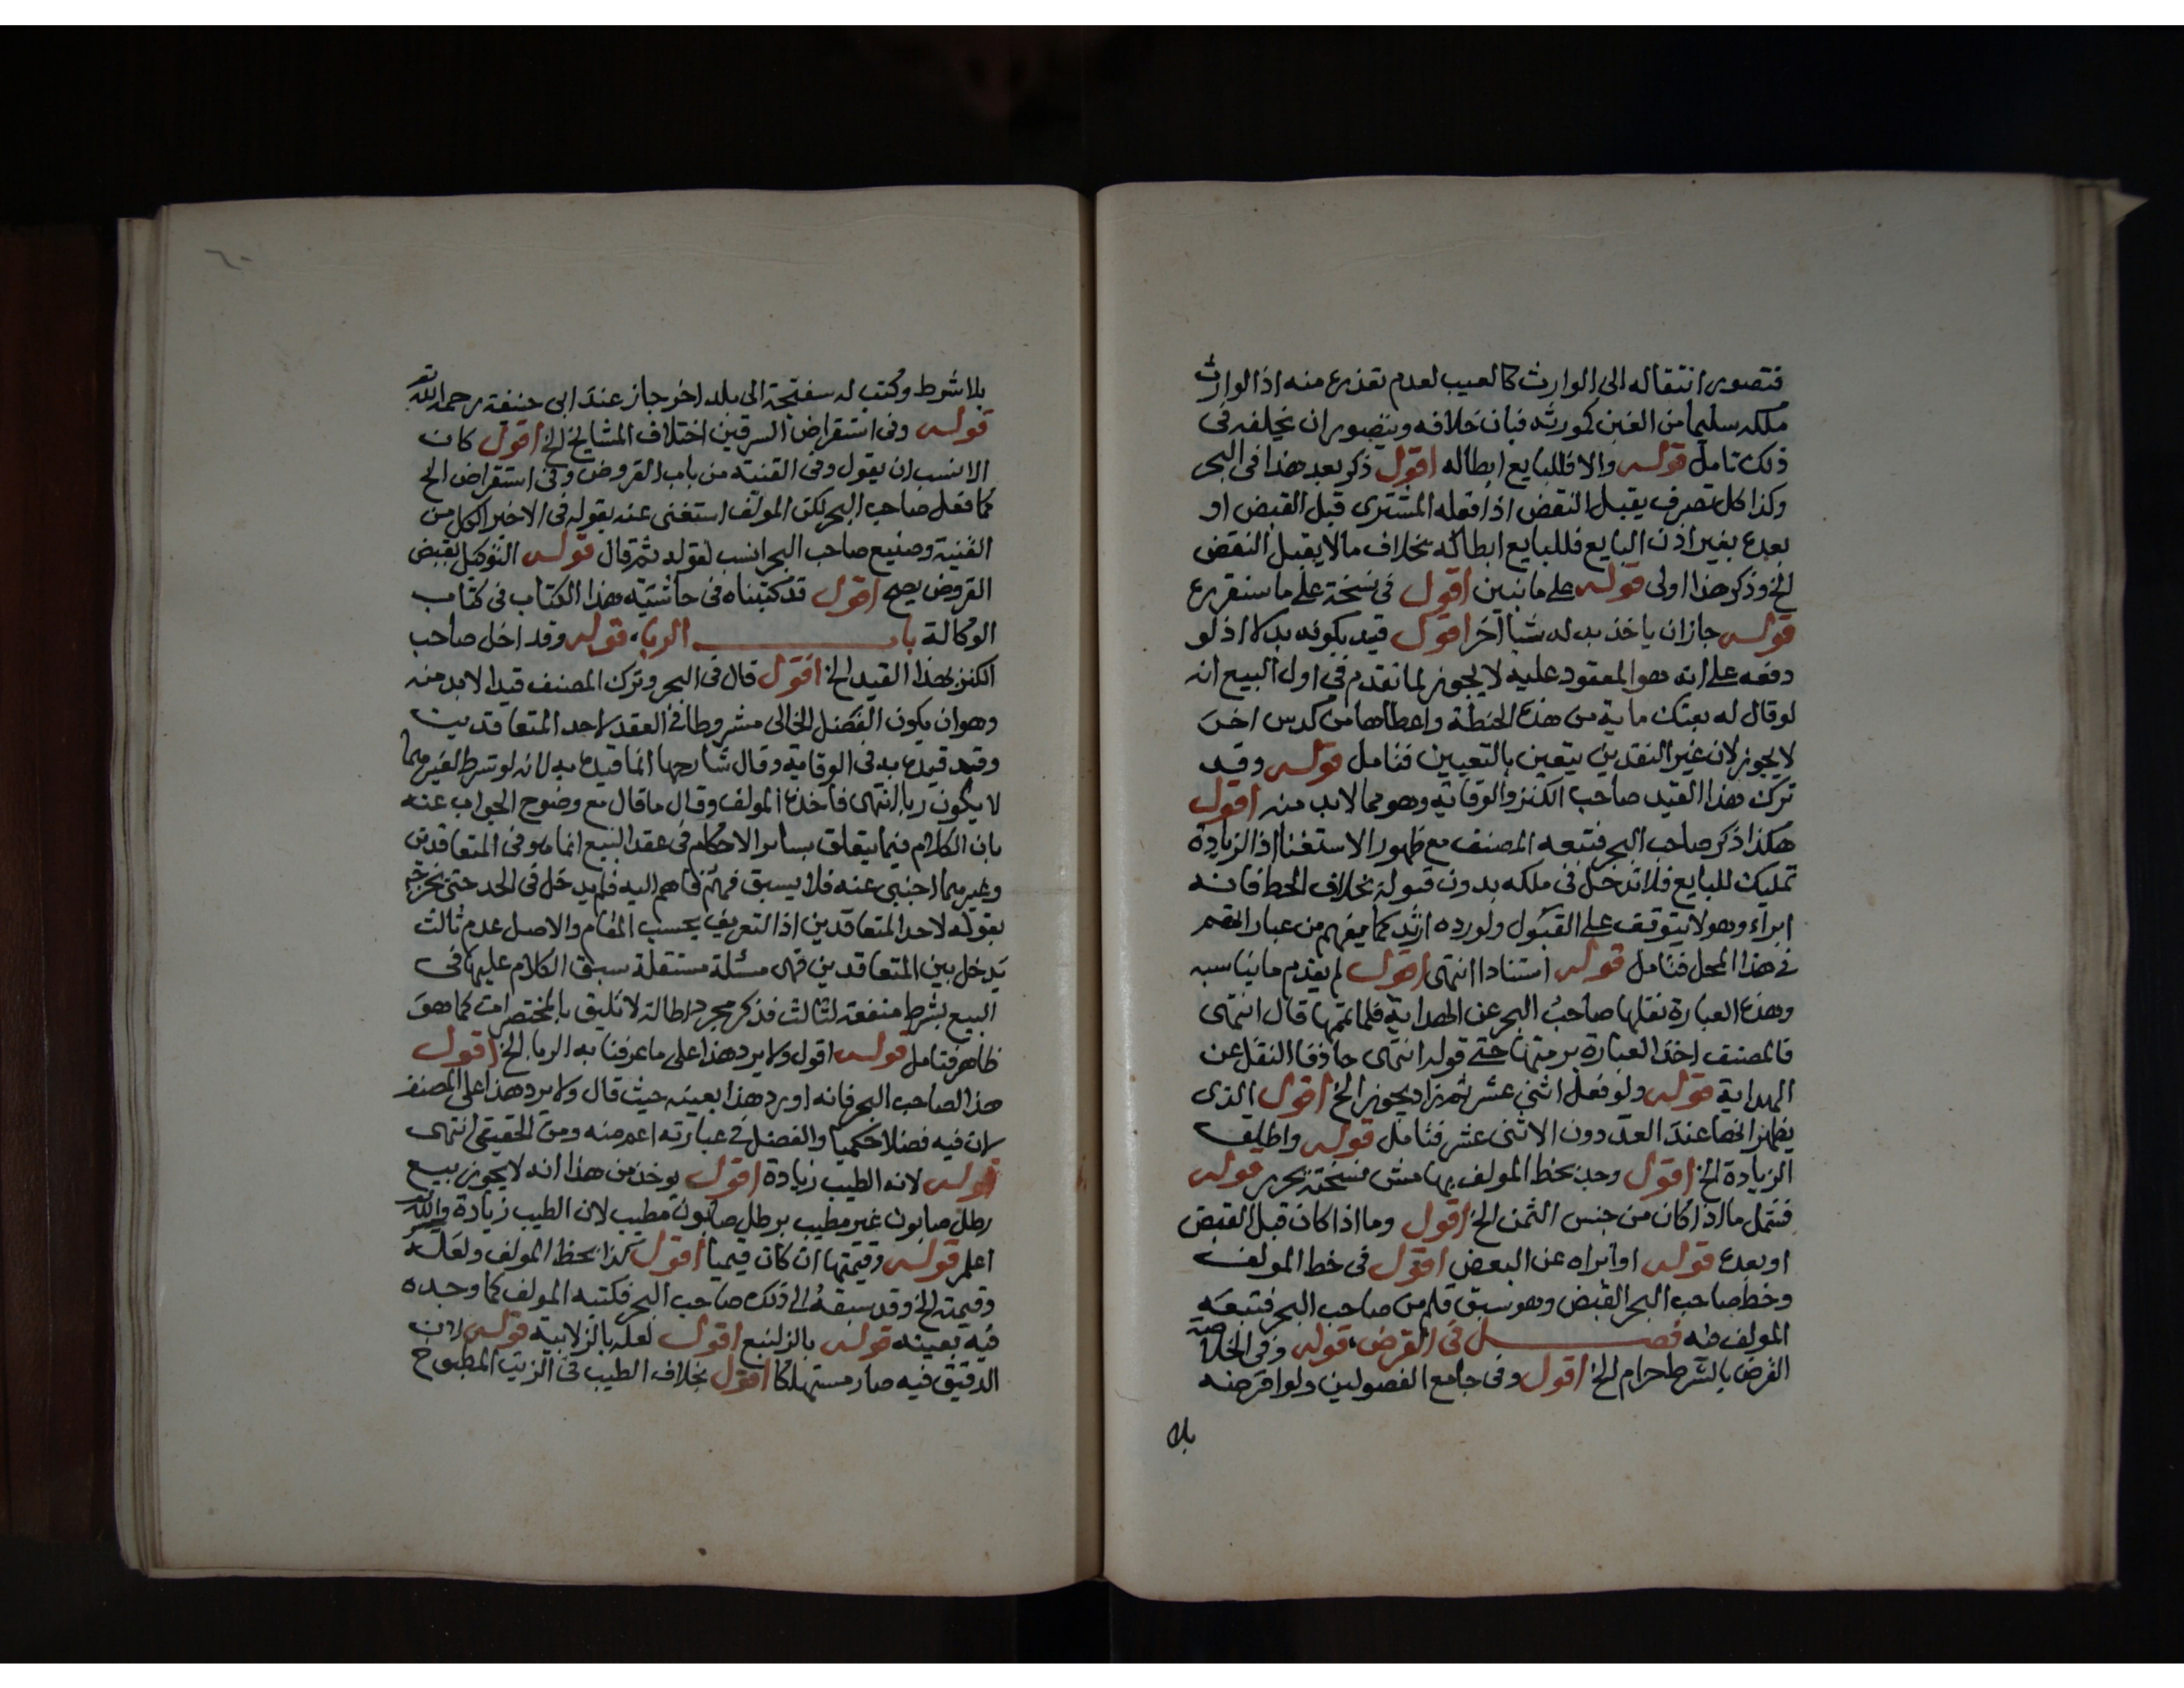 فتصور انتقاله الى الوارث كالعيب لعدم تغذره منه اذا الوارث
ملكه سليما من الغبن كمورثه فبان خلافه ويتصور ان يخلفه فى
ذلك تامل قوله والا فللبايع ابطاله اقول ذكر بعد هذا فى البحر
وكذا كل تصرف يقبل النقض اذا فعله المشترى قبل القبض او
بعده بغير اذن البايع فللبايع ابطاله بخلاف مالا يقبل النقض
الخ وذكر هذا اولى قوله على ما نبين اقول فى نسخة على ما سنقرره
قوله جاز ان ياخذ بدله شيأ اخر اقول قيد بكونه بدلا اذ لو
دفعه على انه هو المعقود عليه لا يجوز لما تقدم فى اول البيع انه
لو قال له بعتك ماية من هذه الحنطة واعطاها من كدس اخر
لا يجوز لان غير النقدين يتعين بالتعيين فتامل قوله وقد
ترك هذا القيد صاحب الكنز والوقاية وهو مما لابد منه اقول
هكذا ذكر صاحب البحر فتبعه المصنف مع ظهور الاستغنا اذ الزيادة
تمليك للبايع فلا تدخل فى ملكه بدون قبوله بخلاف الحط فانه
ابراء وهو لا يتوقف على القبول ولو رده ارتد كما يفهم من عبارتهم
فى هذا المحل فتامل قوله استنادا انتهى اقول لم يقدم ما يناسبه
وهذه العبارة نقلها صاحب البحر عن الهداية فلما تمها قال انتهى
فالمصنف اخذ العبارة برمتها حتى قوله انتهى حاذفا النقل عن
الهداية قوله ولو فعل اثنى عشر ثم زاد يجوز الخ اقول الذى
يظهر انها عند العد دون الاثنى عشر فتامل قوله واطلق
الزيادة الخ اقول وجد بخط المولف بهامش نسخته تحرير قوله
فتمل ما اذا كان من جنس الثمن الخ اقول وما اذا كان قبل القبض
او بعده قوله او ابراه عن البعض اقول فى خط المولف
وخط صاحب البحر القبض وهو سبق قلم من صاحب البحر فتبعه
المولف فيه فصل فى القرض قوله وفى الخلاصة
القرض بالشرط حرام الخ اقول وفى جامع الفصولين ولو اقرضه
بلا
٦٠
بلا شرط وكتب له سفتجة الى بلد اخر جاز عند ابى حنيفة رحمه الله تع
قوله وفى استقراض السرقين اختلاف المشايخ الخ اقول كان
الانسب ان يقول وفى القنية من باب القروض وفى استقراض الخ
كما فعل صاحب البحر لكن المولف استغنى عنه بقوله فى الاخير الكل من
القنية وصنيع صاحب البحر انسب لقوله ثم قال قوله التوكيل بقبض
القروض يصح اقول قد كتبناه فى حاشية هذا الكتاب فى كتاب
الوكالة باب الربا، قوله وقد اخل صاحب
الكنز بهذا القيد الخ اقول قال فى البحر وترك المصنف قيدا لابد منه
وهو ان يكون الفضل الخالى مشروطا فى العقد لاحد المتعاقدين
وقيد قيده به فى الوقاية وقال شارحها انما قيده به لانه لو شرط لغيرهما
لا يكون ربا انتهى فاخذه المولف وقال ما قال مع وضوح الجواب عنه
بان الكلام فيما يتعلق بساير الاحكام فى عقد البيع انما هو فى المتعاقدين
وغيرهما اجنبى عنه فلا يسبق فهم فاهم اليه فلم يدخل فى الحد حتى نخرجه
بقوله لاحد المتعاقدين اذ التعريف بحسب المقام والاصل عدم ثالث
يدخل بين المتعاقدين فهى مسئلة مستقلة سبق الكلام عليها فى
البيع بشرط منفعة لثالث فذكر مجرد اطالة لا تليق بالمختصرات كما هو
ظاهر فتامل قوله اقول ولا يرد هذا على ما عرفنا به الربا الخ اقول
هذا لصاحب البحر فانه اورد هذا بعينه حيث قال ولا يرد هذا على المصنف
لان فيه فضلا حكميا والفضل فى عبارته اعم منه ومن الحقيقى انتهى
قوله لانه الطيب زيادة اقول يوخذ من هذا انه لا يجوز بيع
رطل صابون غير مطيب برطل صابون مطيب لان الطيب زيادة والله
اعلم قوله وقيمتها ان كان قيميا اقول كذا بخط المولف ولعله
وقيمته الخ وقد سبقه الى ذلك صاحب البحر فكتبه المولف كما وجده
فيه بعينه قوله بالزلنبع اقول لعله بالزلابية قوله لان
الدقيق فيه صار مستهلكا اقول بخلاف الطيب فى الزيت المطبوخ